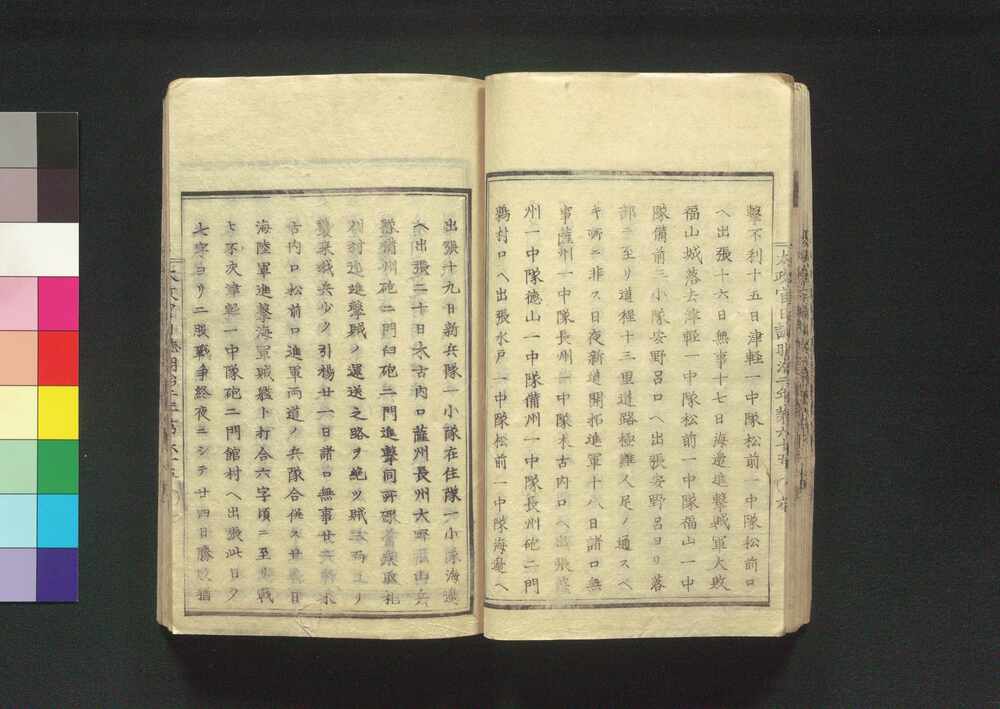 撃不利十五日津軽一中隊松前一中隊松前口
ヘ出張十六日無事十七日海邉進撃賊軍大敗
福山城落去津軽一中隊松前一中隊福山一中
隊備前三小隊安野呂口ヘ出張安野呂ヨリ落
部ニ至リ道程十三里道路極難人足ノ通スベ
キ所ニ非ス日夜新道開拓進軍十八日諸口無
事薩州一中隊長州一中隊木古内口ヘ出張
州一中隊徳山一中隊備州一中隊長州砲二門
鶉村口ヘ出張水戸一中隊松前一中隊海邉ヘ
太政官日誌明治二年第六十五
出張十九日新兵隊一小隊在住隊一小隊海
ヘ出張二十日木古内口薩州長州大野福山兵
隊備州砲二門臼砲二門進撃同所
村迄進撃賊ノ運送之路ヲ絶ツ賊
襲来賊兵少ク引揚廿一日諸口無事廿
古内口松前口進軍両道ノ兵隊合併ス廿
海陸軍進撃海軍賊艦ト打合六字頃ニ至
止不次津軽一中隊砲二門館村ヘ出張此日夕
七字ヨリ二股戦争終夜ニシテ廿四日勝敗猶